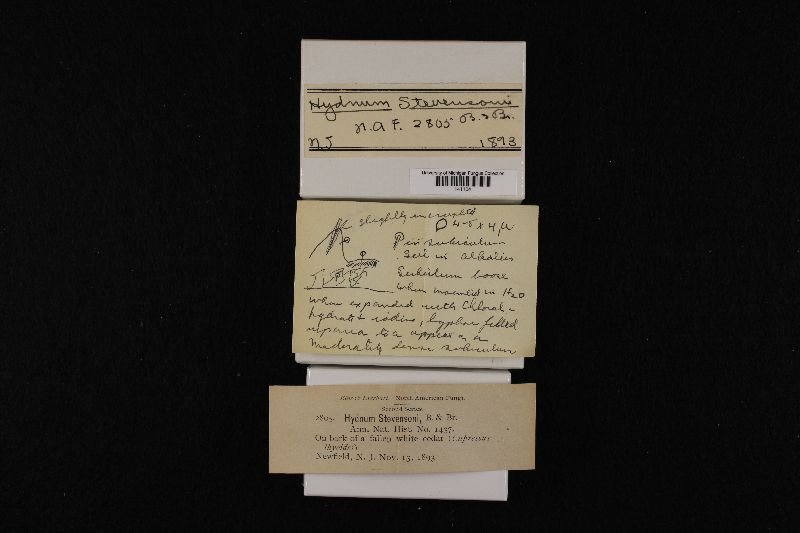 Hydnum Stevensoni
N.A.F. 2805 B. & Br.
NJ 1893
University of Michigan Fungus Collection
slightly incrusted
4-5 x 4 µ
in subiculum
Sol in alkalies
Subiculum loose
when mounted in H2O
when expanded with Chloral-
hydrate & iodine, hyphae filled
to a
Moderately dense subiculum
North American Fungi.
Second Series.
2805. Hydnum Stevensoni, B. & Br.
Ann. Nat. Hist. No. 1437.
On bark of a fallen white cedar (Cupressus
thyoides)
Newfield, N. J. Nov. 13, 1893.